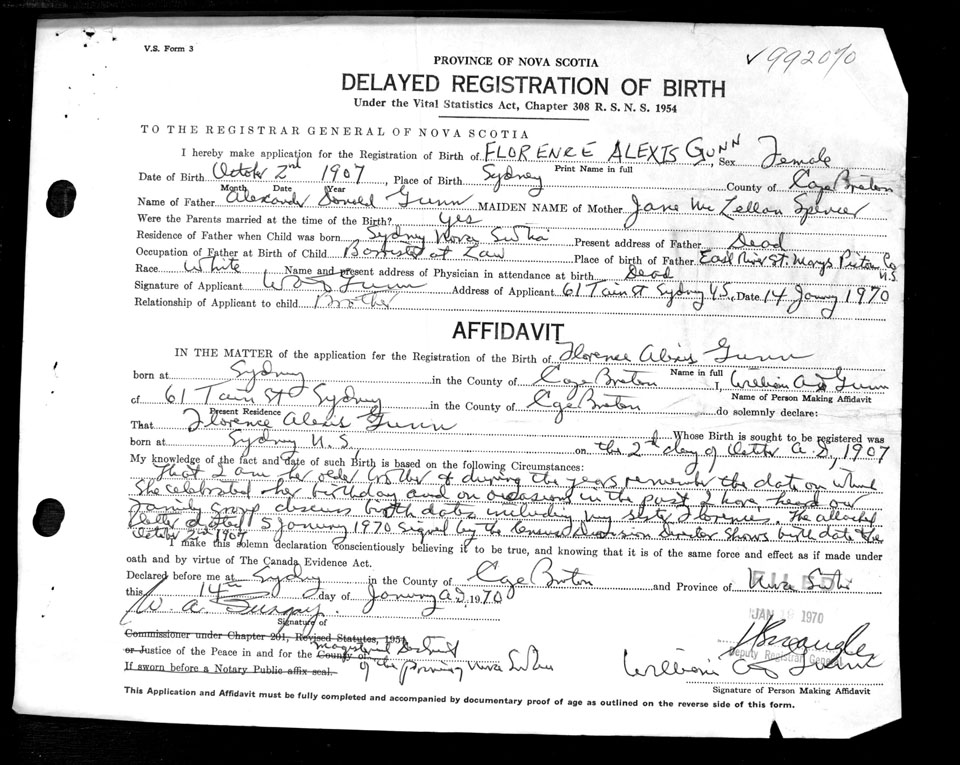 V.S. Form 3
✓99200
PROVINCE OF NOVA SCOTIA
DELAYED REGISTRATION OF BIRTH
Under the Vital Statistics Act, Chapter 308 R. S. N. S. 1954
TO THE REGISTRAR GENERAL OF NOVA SCOTIA
I hereby make application for the Registration of Birth of FLORENCE ALEXIS GUNN, Sex Female
Print Name in full
Date of Birth October 2nd 1907, Place of Birth Sydney County of Cape Breton
Month Date Year
Name of Father Alexander Donald Gunn MAIDEN NAME of Mother Jane McLellan Spencer
Were the Parents married at the time of the Birth? Yes
Residence of Father when Child was born Sydney Nova Scotia Present address of Father Dead
Occupation of Father at Birth of Child Barrister at Law Place of birth of Father East River St. Marys Pictou Co N.S.
Race White Name and present address of Physician in attendance at birth Dead
Signature of Applicant Gunn Address of Applicant 61 Tain St Sydney N.S., Date 14 January 1970
Relationship of Applicant to child Brother
AFFIDAVIT
IN THE MATTER of the application for the Registration of the Birth of Florence Alexis Gunn
Name in full
born at Sydney in the County of Cape Breton I, William Gunn
Name of Person Making Affidavit
of 61 Tain St Sydney in the County of Cape Breton do solemnly declare:
Present Residence
That Florence Alexis Gunn Whose Birth is sought to be registered was
born at Sydney N.S. on the 2nd day of October A.D., 1907
My knowledge of the fact and date of such Birth is based on the following Circumstances:
That I am her older brother & during the years remember the date on which
She celebrated her birthday and on occasions in the past I have heard our
Family Group discuss birth dates including my sister Florences. The attached
letter dated 5 January 1970 signed by the Census Division Director shows birth date the
October 2nd 1907
I make this solemn declaration conscientiously believing it to be true, and knowing that it is of the same force and effect as if made under
oath and by virtue of The Canada Evidence Act.
Declared before me at Sydney in the County of Cape Breton and Province of Nova Scotia
this 14th day of January A.D. 1970
FILED
JAN 1970
W. A.
Signature of
Commissioner under Chapter 201, Revised Statutes, 1954
or Justice of the Peace in and for the County of
If sworn before a Notary Public affix seal.
Deputy Registrar General
William Gunn
Signature of Person Making Affidavit
This Application and Affidavit must be fully completed and accompanied by documentary proof of age as outlined on the reverse side of this form.